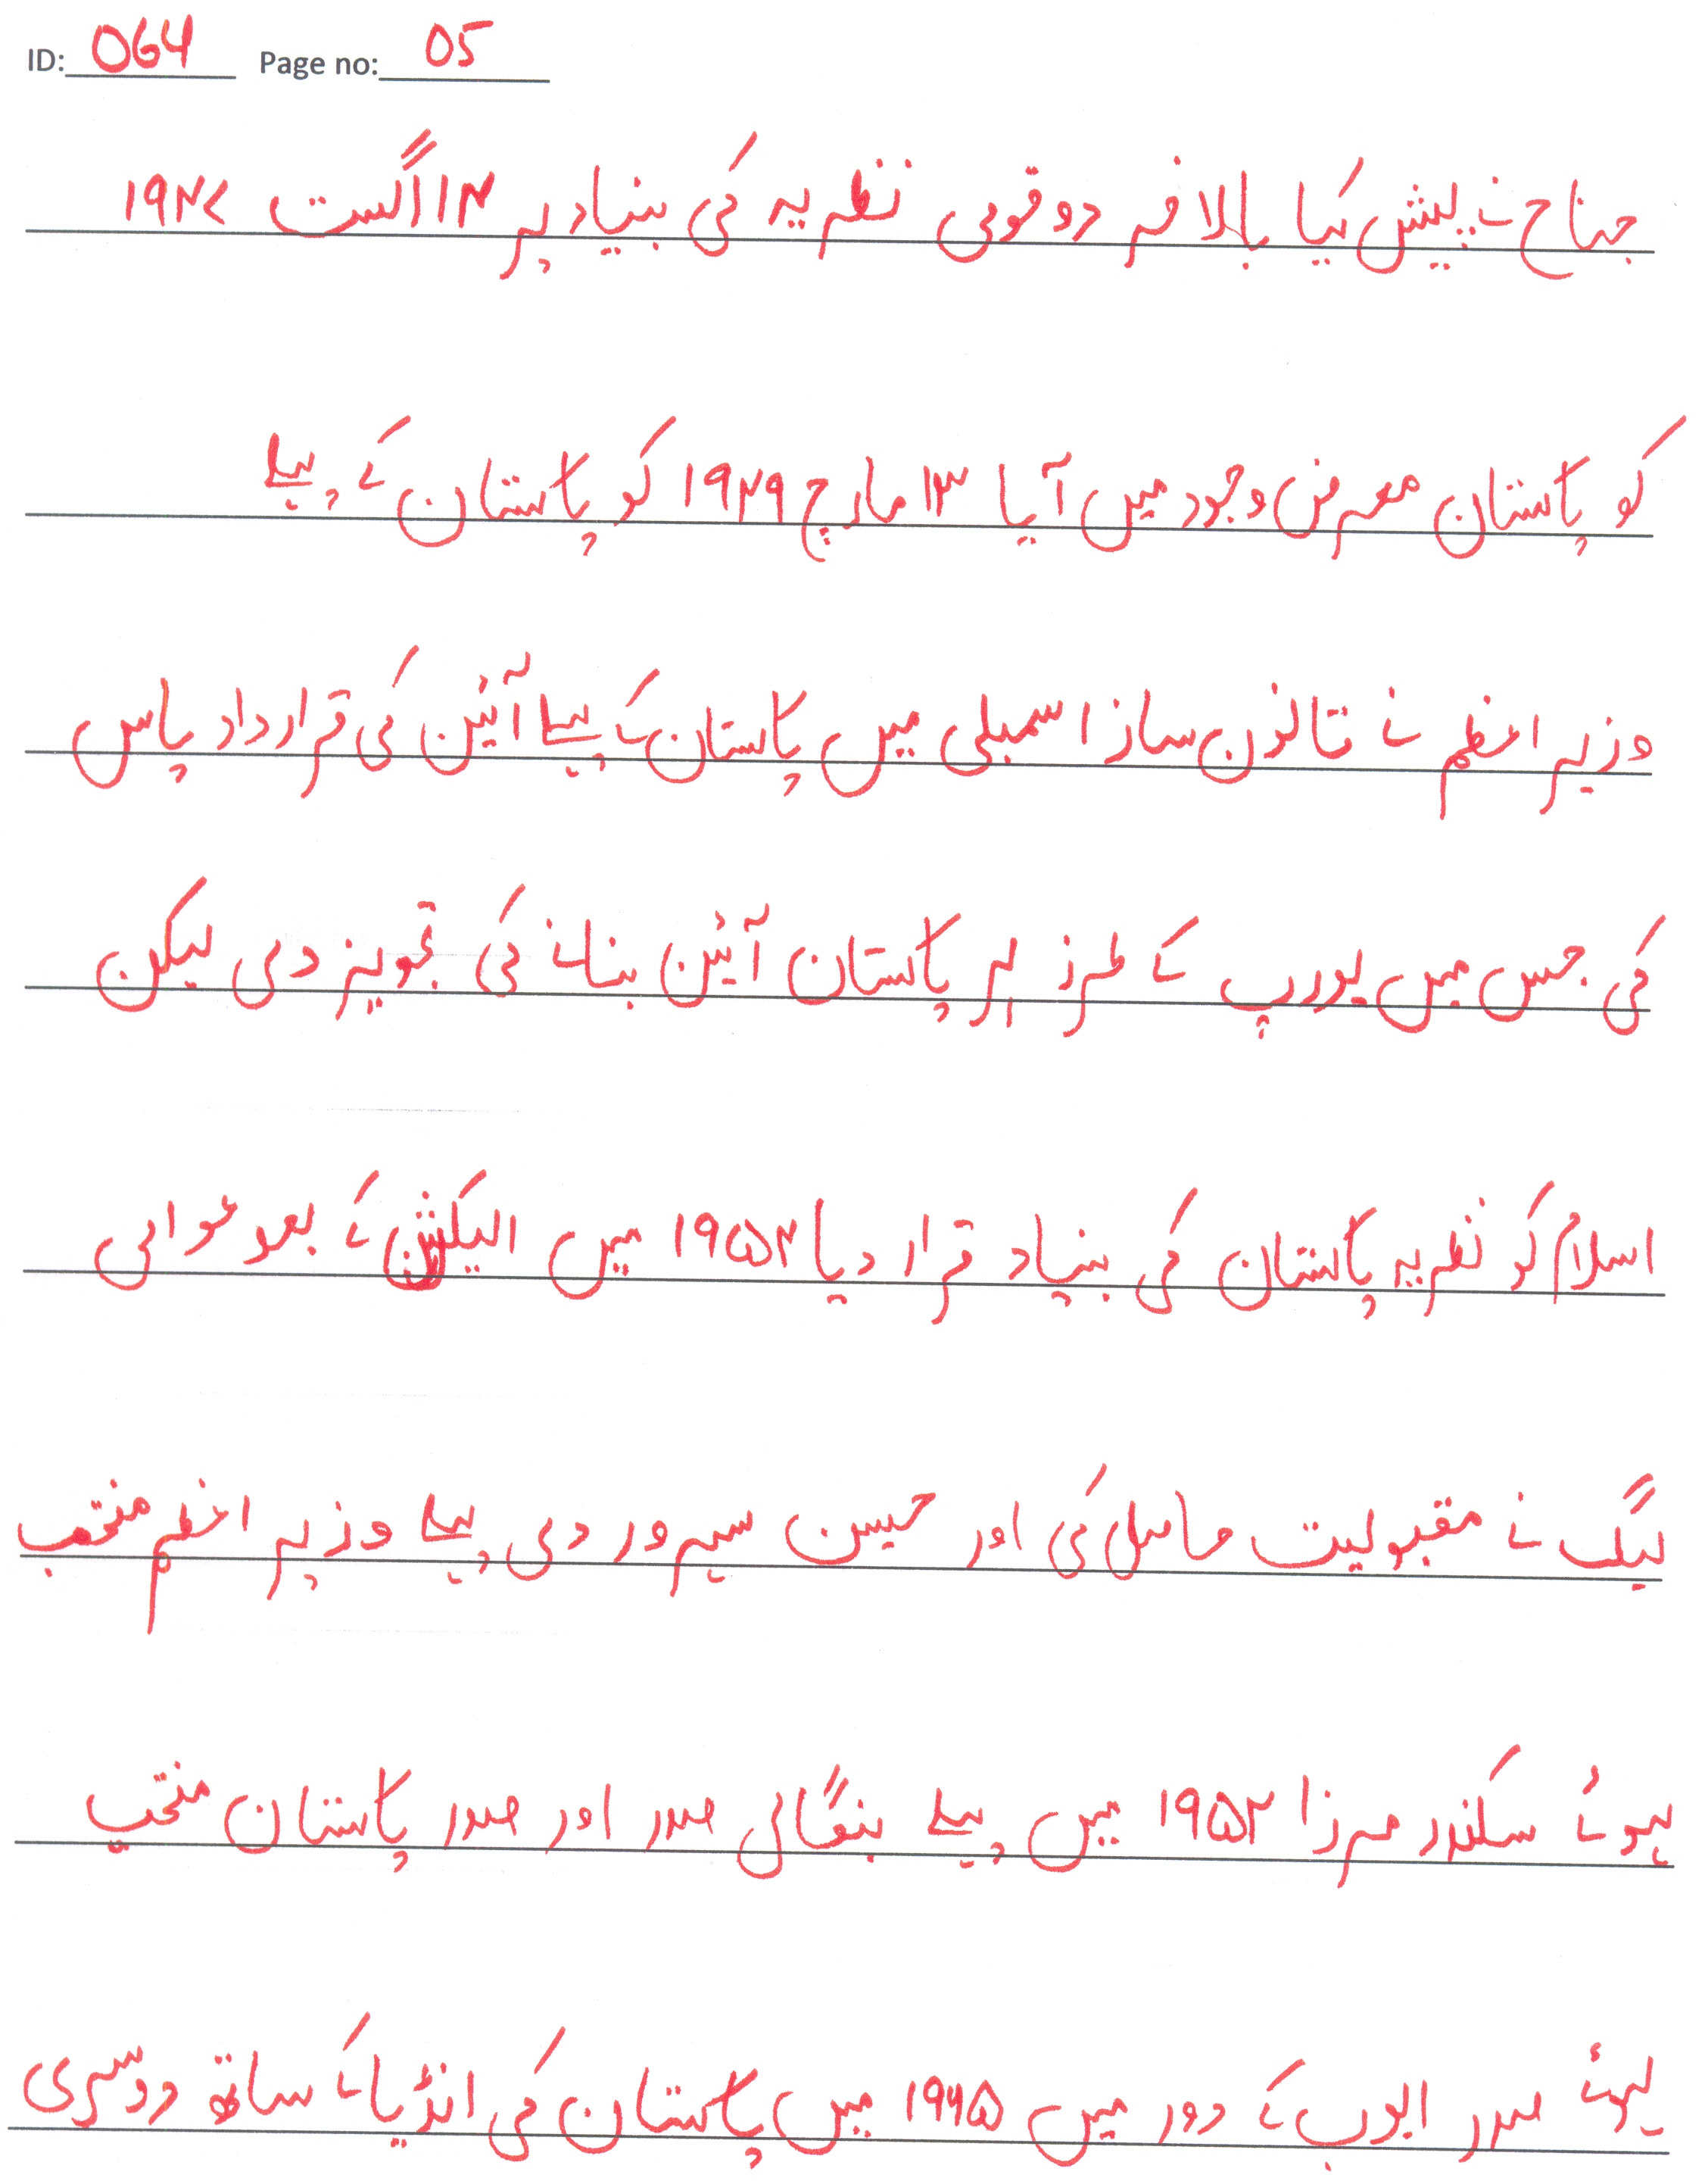 ID: 064 Page no: 05
جناح نے پیش کیا بالاخر دو قومی نظریہ کی بنیاد پر ۱۴ اگست ۱۹۴۷
کو پاکستان معرض وجود میں آیا ۱۳ مارچ ۱۹۴۹ کو پاکستان کے پہلے
وزیر اعظم نے قانون ساز اسمبلی میں پاکستان کے پہلے آئین کی قرارداد پاس
کی جس میں یورپ کے طرز پر پاکستان آئین بنانے کی تجویز دی لیکن
اسلام کو نظریہ پاکستان کی بنیاد قرار دیا ۱۹۵۴ میں الیکشن کے بعد عوامی
لیگ نے مقبولیت حاصل کی اور حسین سہروردی پہلے وزیر اعظم منتخب
ہوئے سکندر مرزا ۱۹۵۲ میں پہلے بنگالی صدر اور صدر پاکستان منتخب
ہوئے صدر ایوب کے دور میں ۱۹۶۵ میں پاکستان کی انڈیا کے ساتھ دوسری